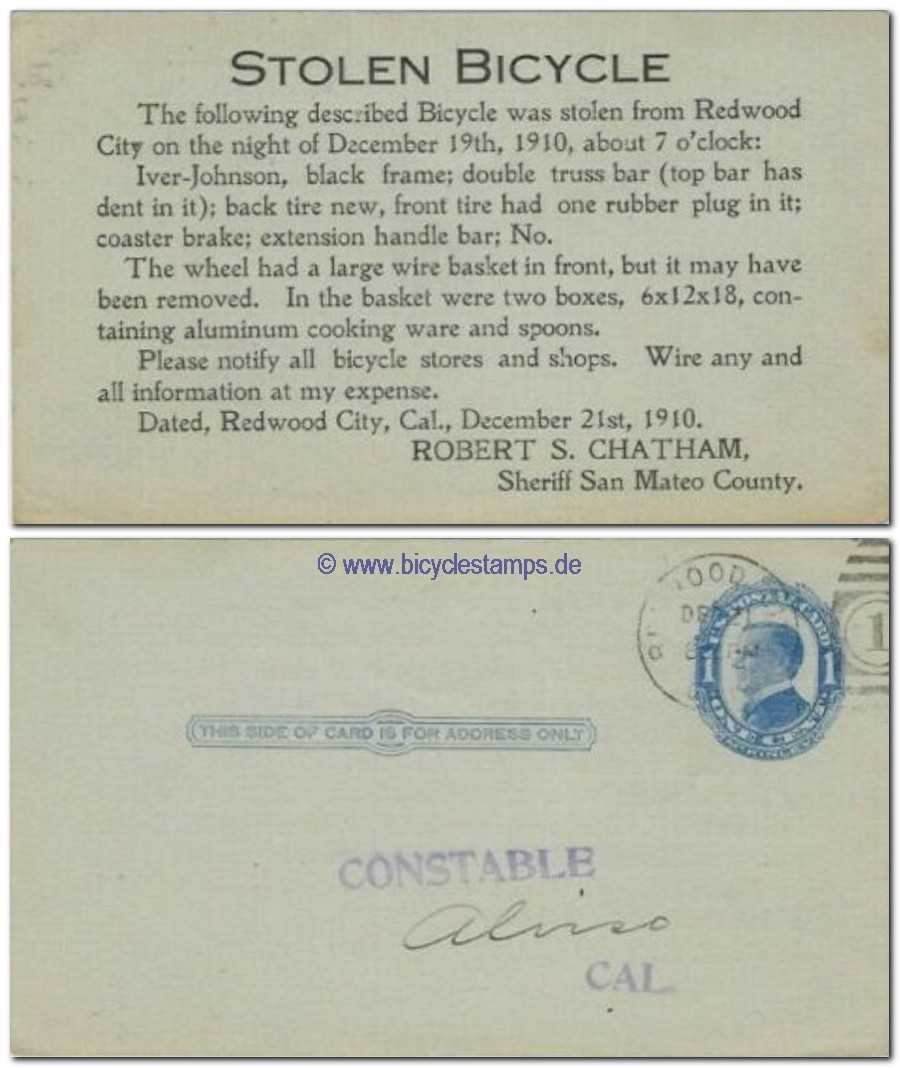 STOLEN BICYCLE
The following described Bicycle was stolen from Redwood
City on the night of December 19th, 1910, about 7 o'clock:
Iver-Johnson, black frame; double truss bar (top bar has
dent in it); back tire new, front tire had one rubber plug in it;
coaster brake; extension handle bar; No.
The wheel had a large wire basket in front, but it may have
been removed. In the basket were two boxes, 6x12x18, con-
taining aluminum cooking ware and spoons.
Please notify all bicycle stores and shops. Wire any and
all information at my expense.
Dated, Redwood City, Cal., December 21st, 1910.
ROBERT S. CHATHAM,
Sheriff San Mateo County.
© www.bicyclestamps.de
1 1
1
THIS SIDE OF CARD IS FOR ADDRESS ONLY
CONSTABLE
Alviso
CAL.